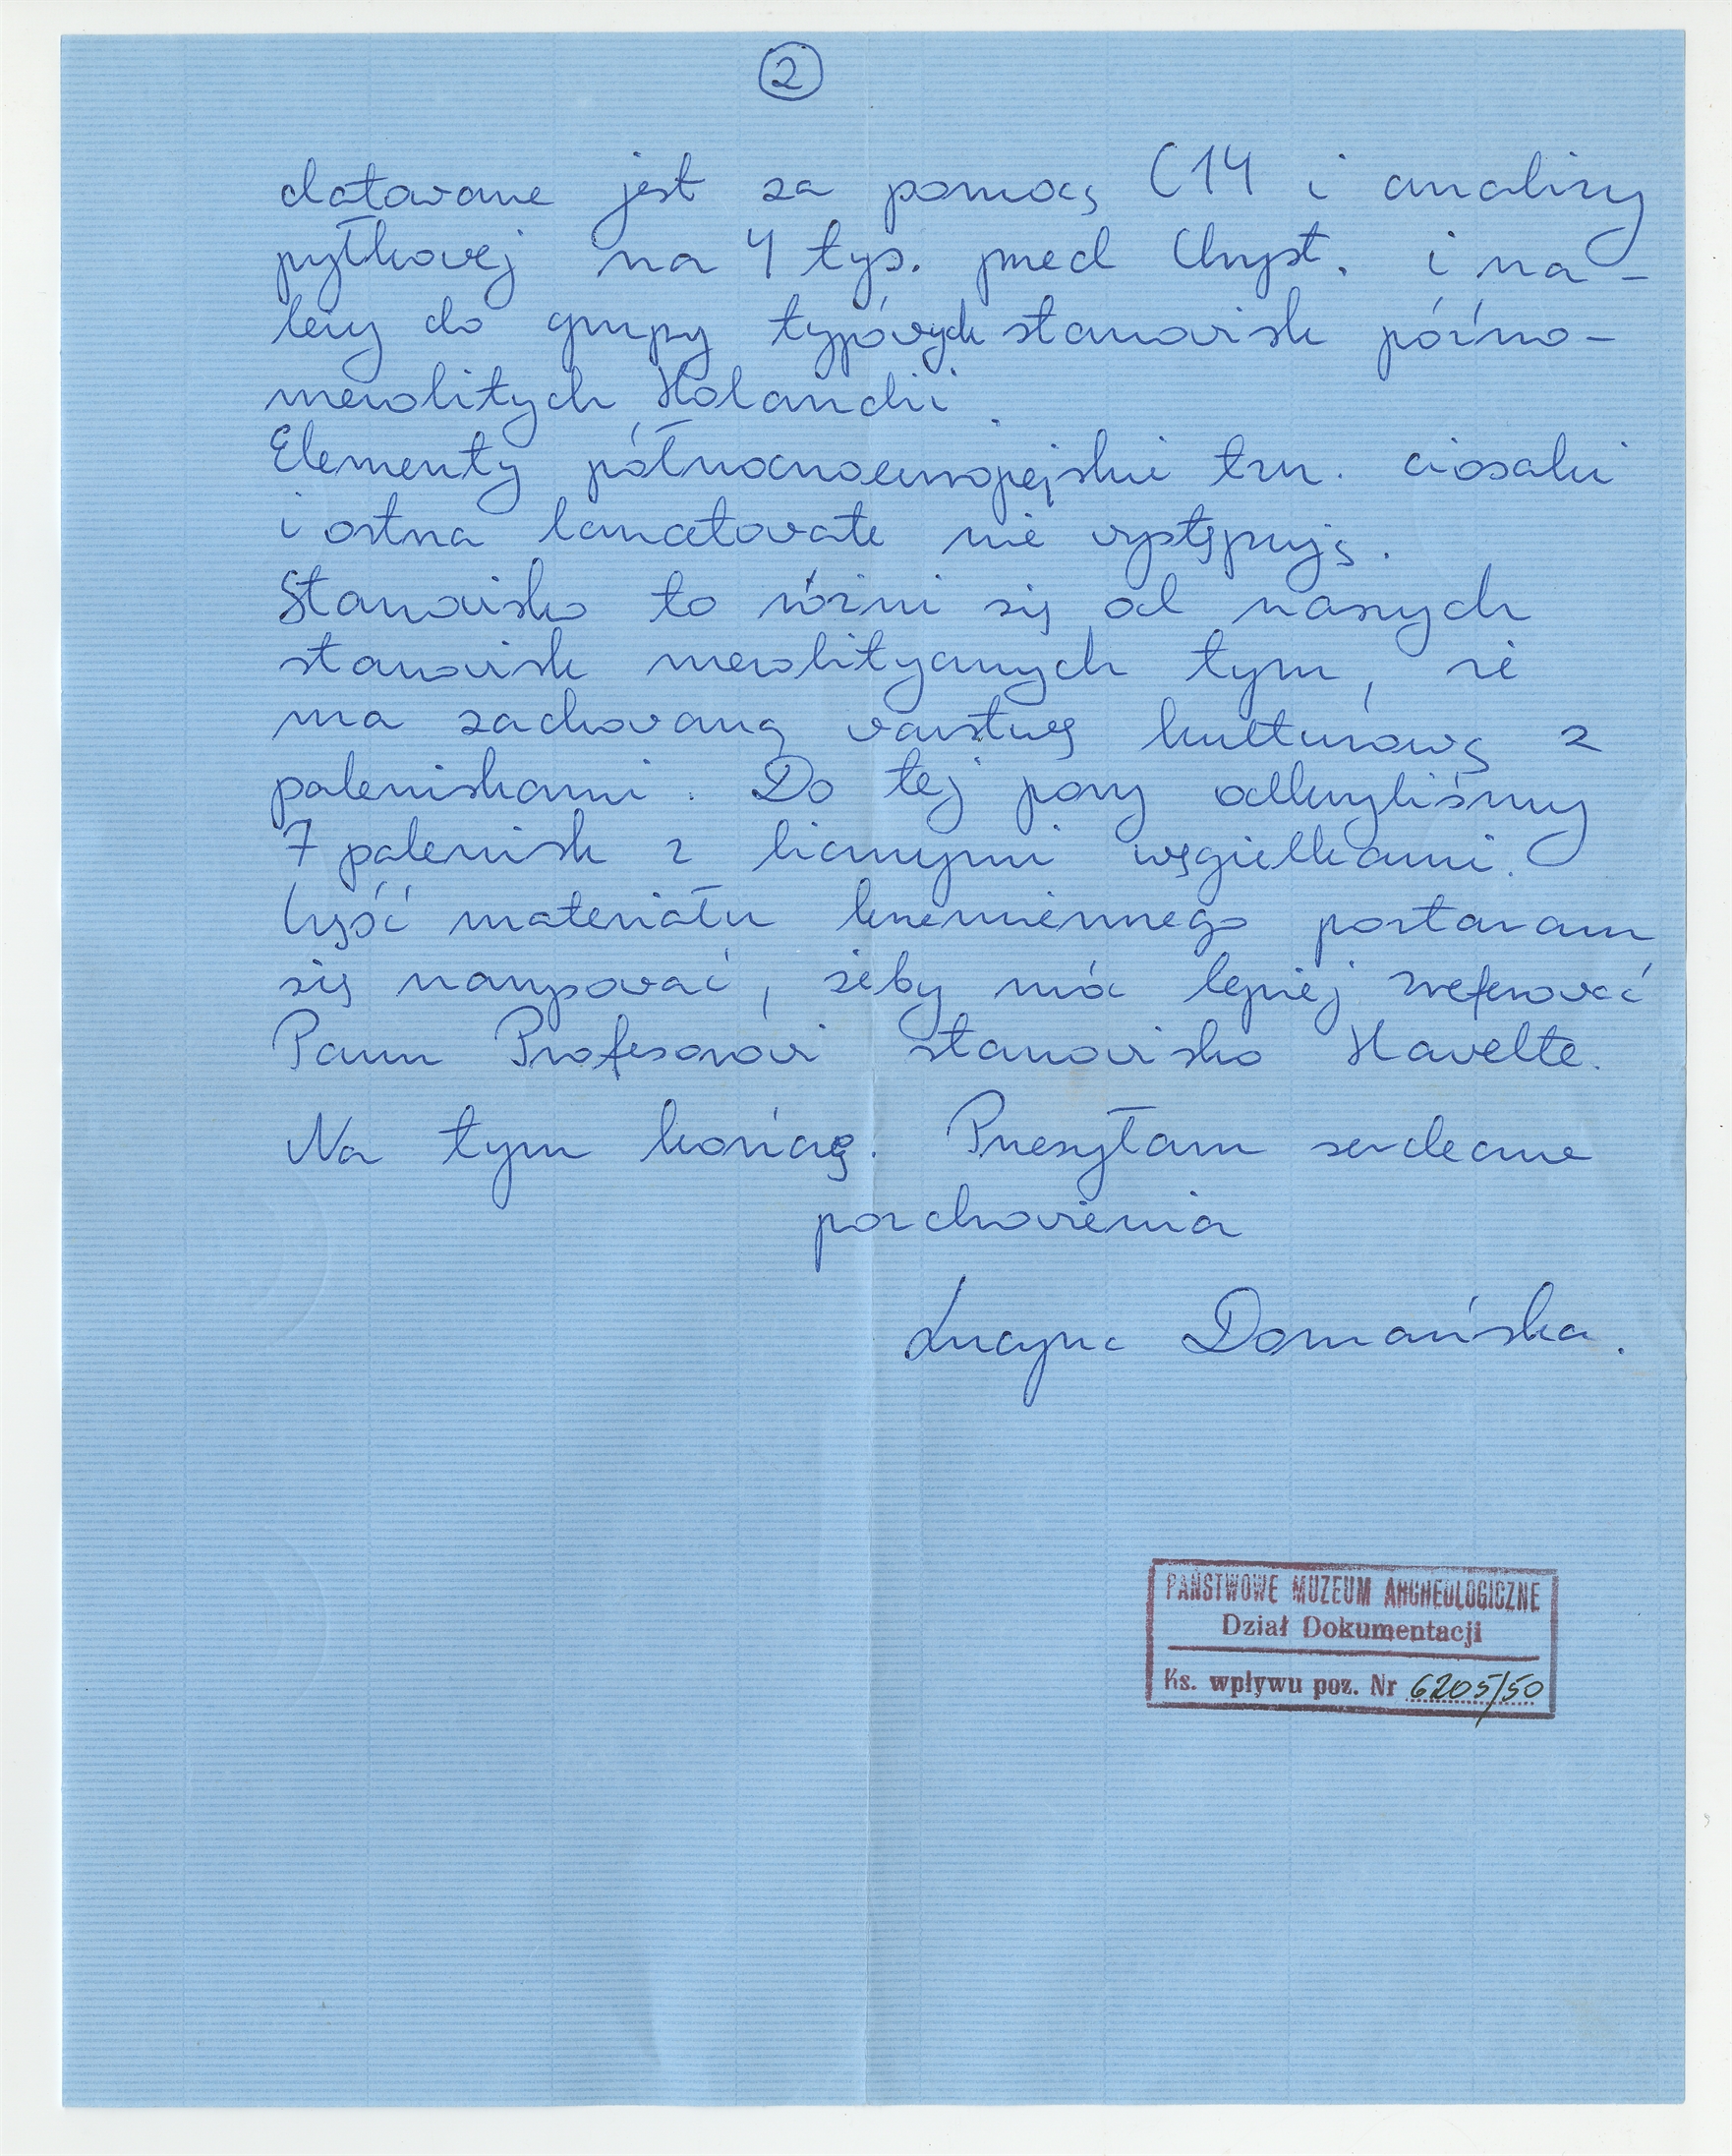 2
datowane jest za pomocą C14 i analizy
pyłkowej na 4 tys. przed Chryst. i na-
leży do grupy typowych stanowisk późno-
mezolitych Holandii.
Elementy północnoeuropejskie tzn. ciosaki
i ostrza lancetowate nie występują.
Stanowisko to różni się od naszych
stanowisk mezolitycznych tym, że
ma zachowaną warstwę kulturową z
paleniskami. Do tej pory odkryliśmy
7 palenisk z licznymi węgielkami.
Część materiału krzemiennego postaram
się narysować, żeby móc lepiej zreferować
Panu Profesorowi stanowisko Havelte.
Na tym kończę. Przesyłam serdeczne
pozdrowienia
Lucyna Domańska.
PAŃSTWOWE MUZEUM ARCHEOLOGICZNE
Dział Dokumentacji
Ks. wpływu poz. Nr 6205/50